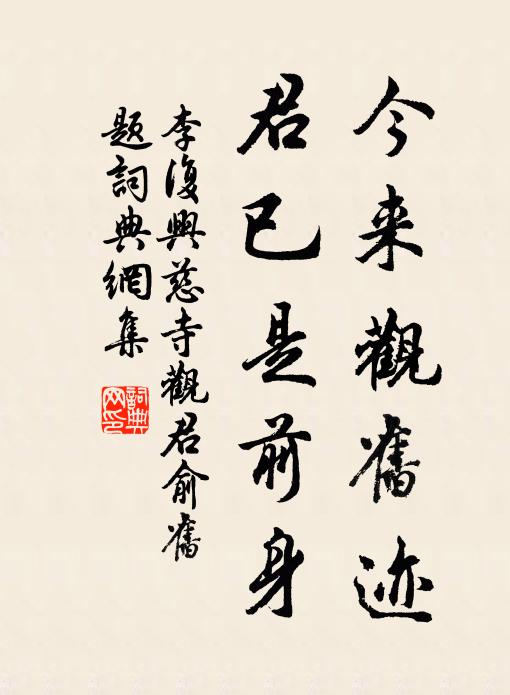 今来觀舊迹
君已是前身
李復興慈寺觀君俞舊
題詞典網集
詞典
网印